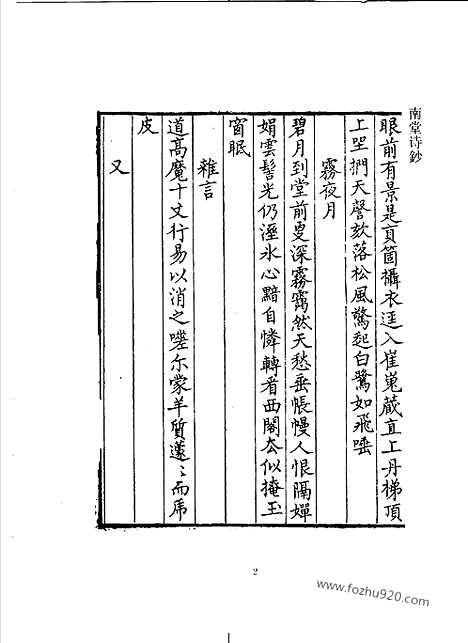 南堂诗鈔
眼前有景是盲箇攝衣逕入崔嵬藏直上丹梯頂
上坐捫天謦欬落松風驚起白鷺如飛唾
霧夜月
碧月到堂前更深霧靄然天愁垂帳幔人恨隔嬋
娟雲髻光仍溼氷心黯自憐轉看西閣去似掩玉
窗眠
雜言
道高魔十丈行易以消之嗟尔蒙羊質蘧〻而虎
皮
又
2
www.fozhu920.com